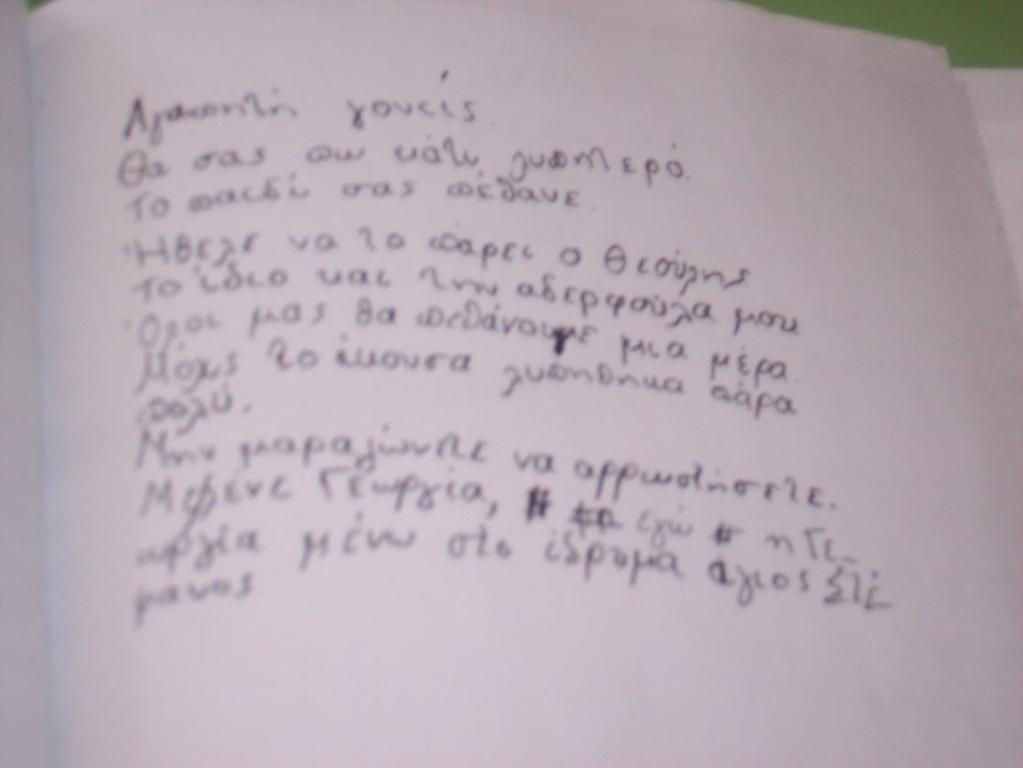 Αγαπητή γονείς.
Θα σας πω κάτι λυπητερό.
Το παιδί σας πέθανε.
Ήθελε να το πάρει ο Θεούλης
Το ίδιο και την αδερφούλα μου
Όλοι μας θα πεθάνουμε μια μέρα.
Μόλις το άκουσα λυπήθηκα πάρα
πολύ.
Μην μαραζώνετε να αρρωστήσετε.
Με λένε Γεωργία, εγώ η Γε
ωργία μένω στο ίδρυμα άγιος Στέ
φανος